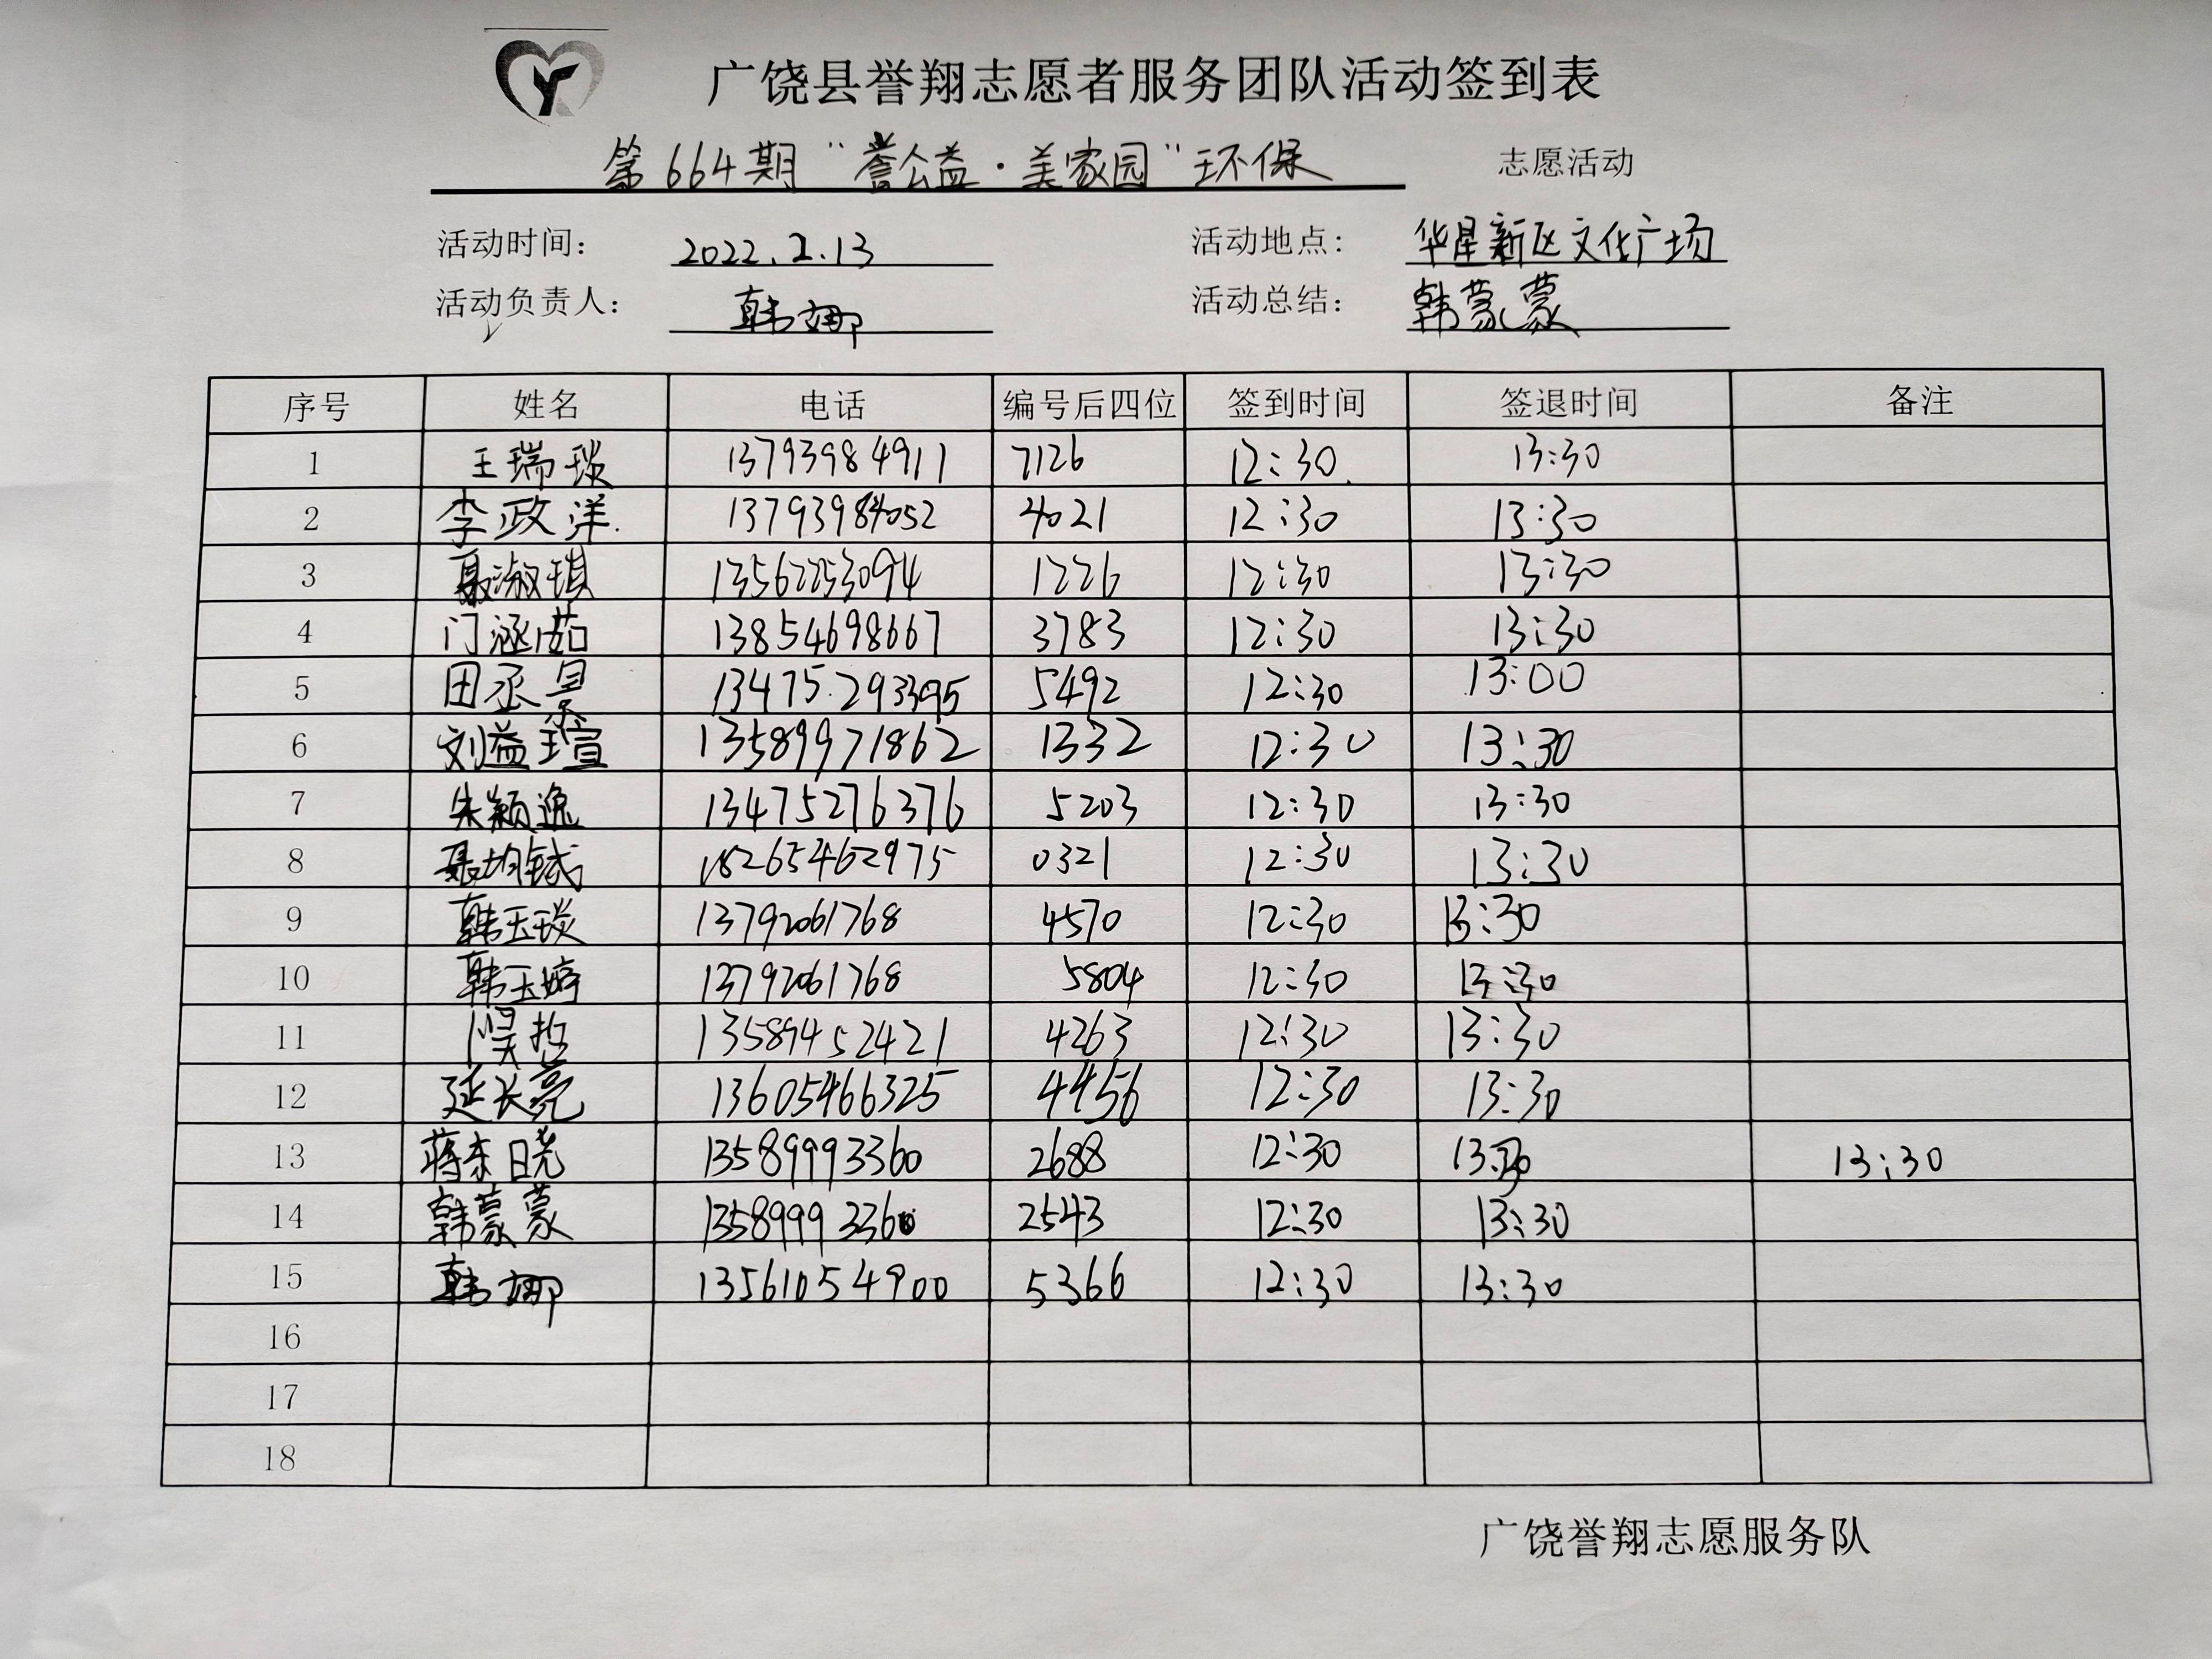 广饶县誉翔志愿者服务团队活动签到表
第664期“誉公益·美家园”环保 志愿活动
活动时间： 2022.2.13 活动地点： 华星新区文化广场
活动负责人： 韩娜 活动总结： 韩蒙蒙
序号 姓名 电话 编号后四位 签到时间 签退时间 备注
1 王瑞琰 13793984911 7126 12:30 13:30
2 李政洋 13793984052 4021 12:30 13:30
3 聂淑琪 13562253094 1226 12:30 13:30
4 门涵茹 13854698667 3783 12:30 13:30
5 田丞昊 13475293395 5492 12:30 13:00
6 刘益瑄 13589971862 1332 12:30 13:30
7 朱颖逸 13475276376 5203 12:30 13:30
8 聂均铖 18265462975 0321 12:30 13:30
9 韩玉琰 13792061768 4570 12:30 13:30
10 韩玉婷 13792061768 5804 12:30 13:30
11 13589452421 4263 12:30 13:30
12 延长亮 13605466325 4456 12:30 13:30
13 蒋东晓 13589993360 2688 12:30 13:30 13:30
14 韩蒙蒙 13589993360 2543 12:30 13:30
15 韩娜 13561054900 5366 12:30 13:30
16
17
18
广饶誉翔志愿服务队